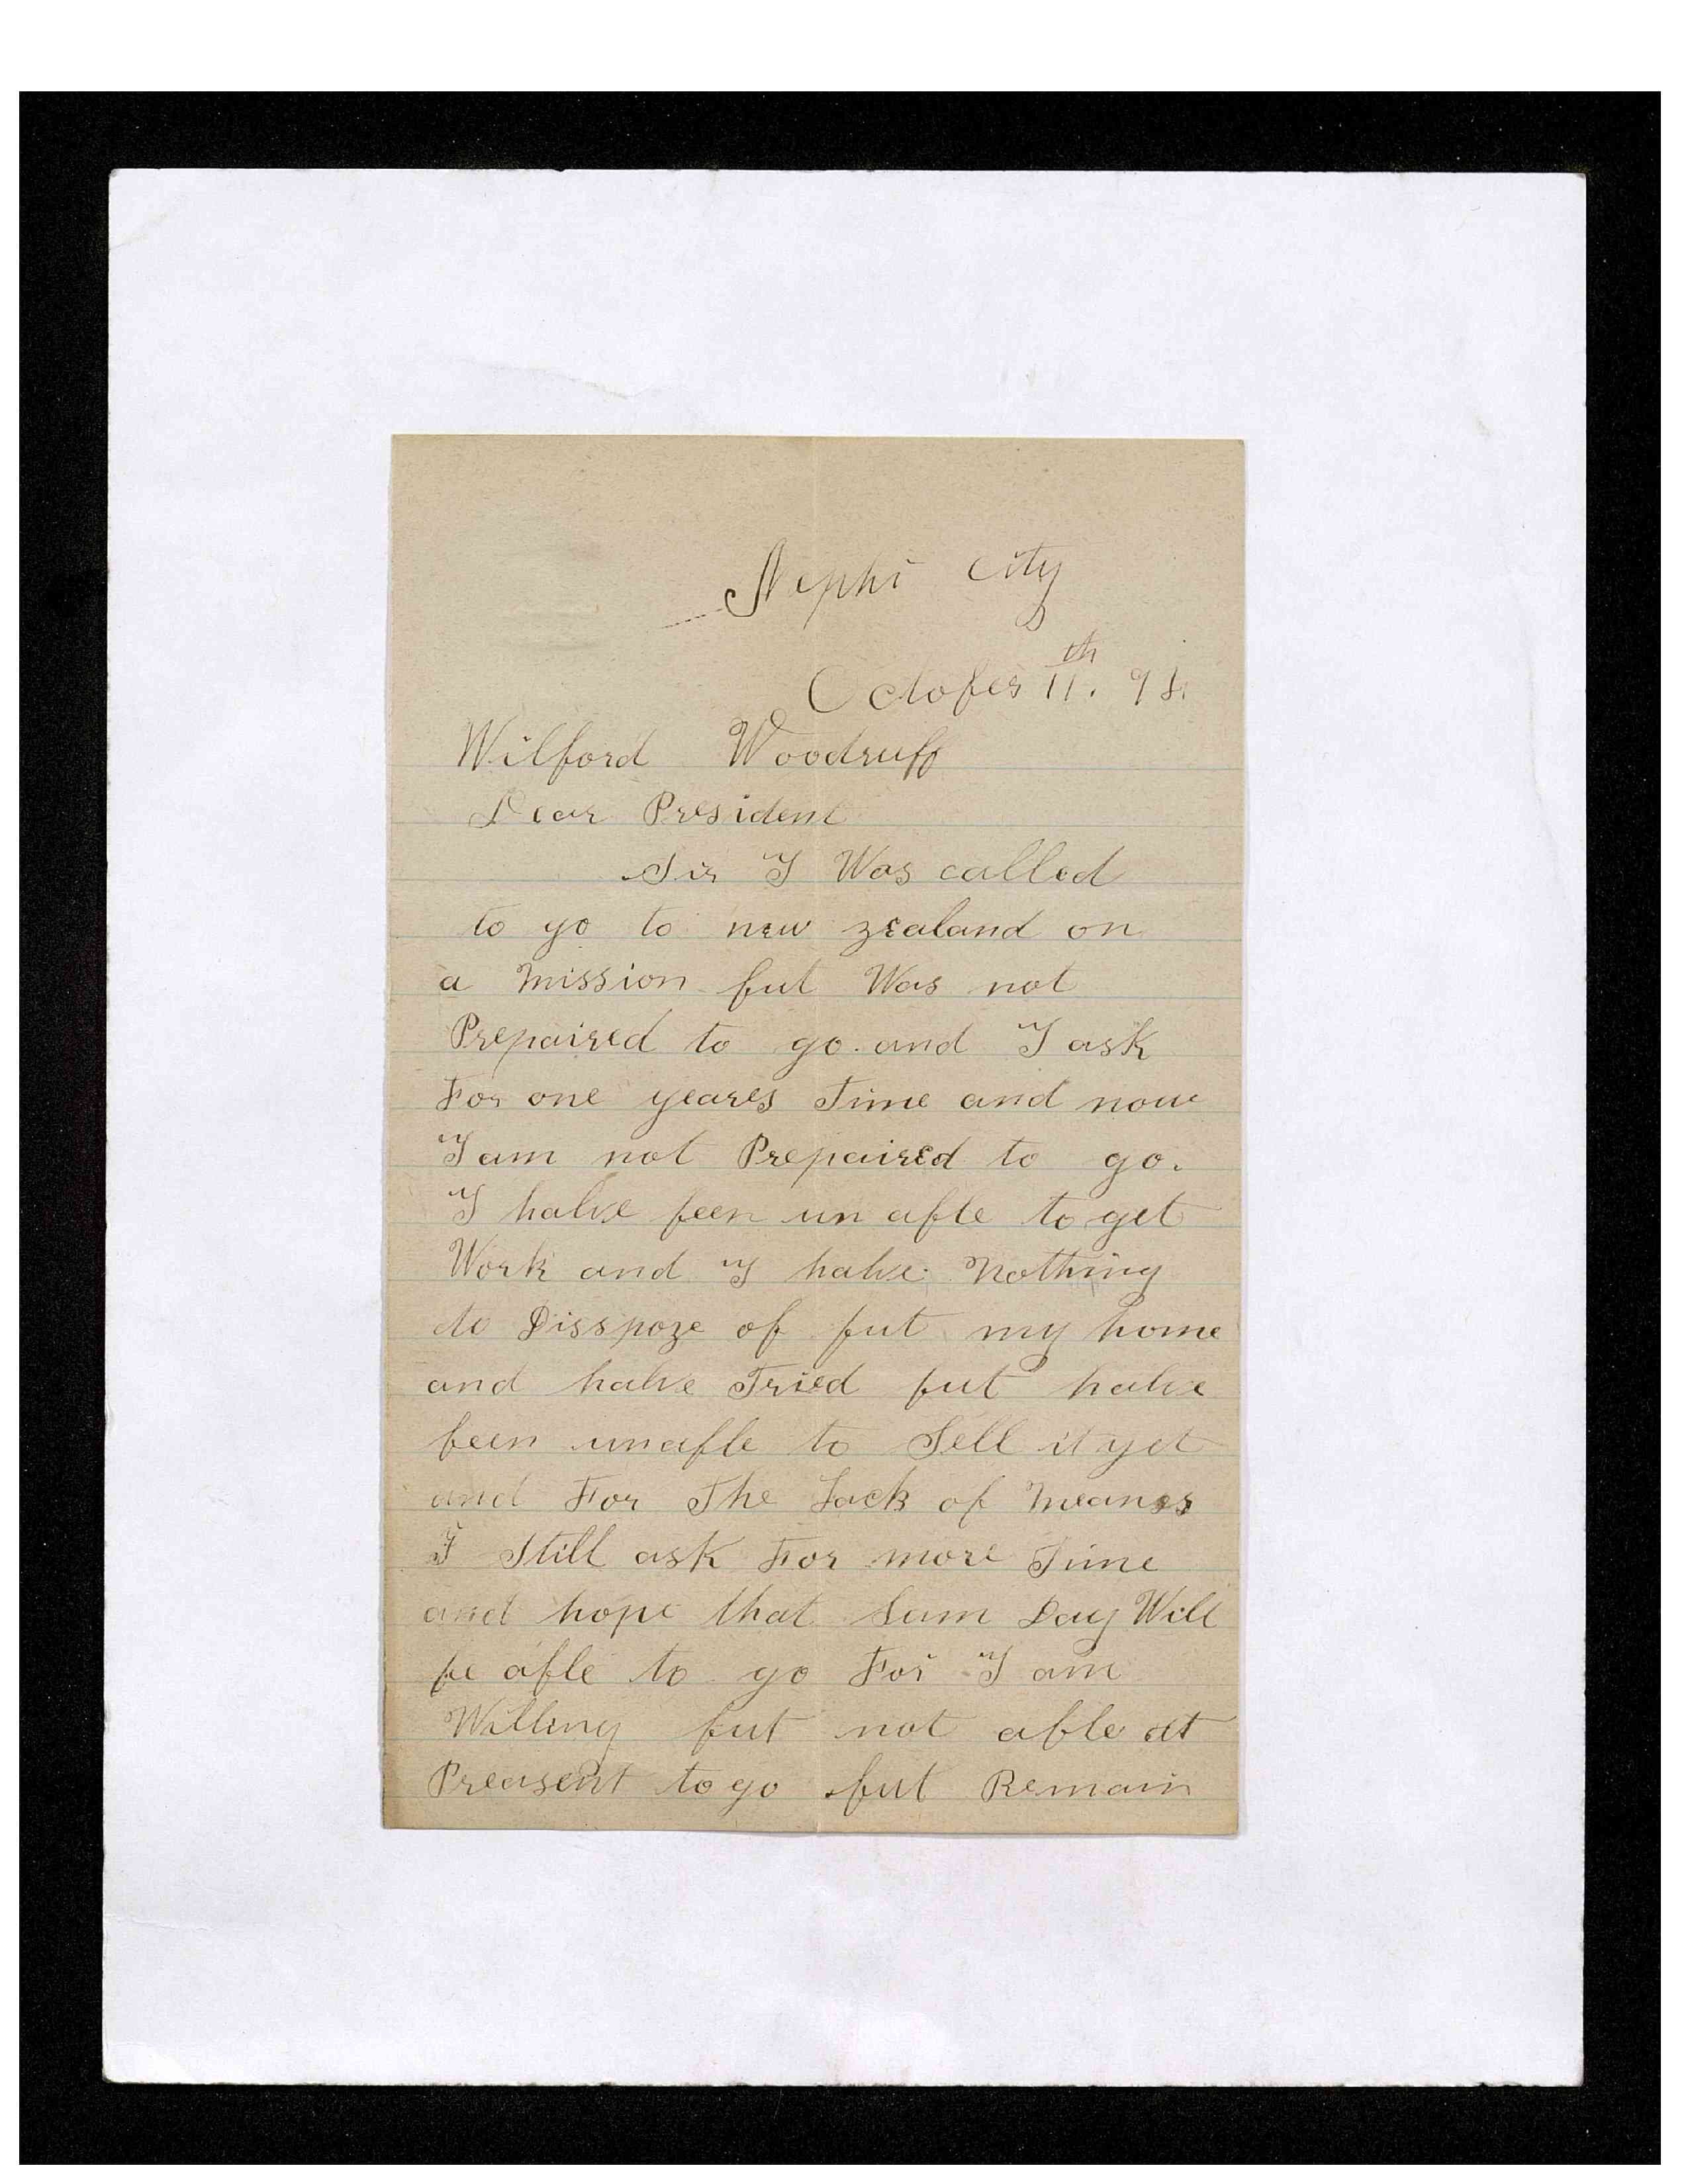 Nephi City
October 11th. 94.
Wilford Woodruff
Dear President
Sir I Was called
to go to new zealand on
a mission but Was not
Prepaired to go. and I ask
For one yeares Time and now
I am not Prepaired to go.
I halve been un able to get
Work and I halve Nothing
to Disspoze of but my home
and halve Tried but halve
been unable to Sell it yet
and For The Lack of Means
I Still ask For more Time
and hope that Sum Day Will
be able to go For I am
Willing but not able at
Preasent to go but Remain